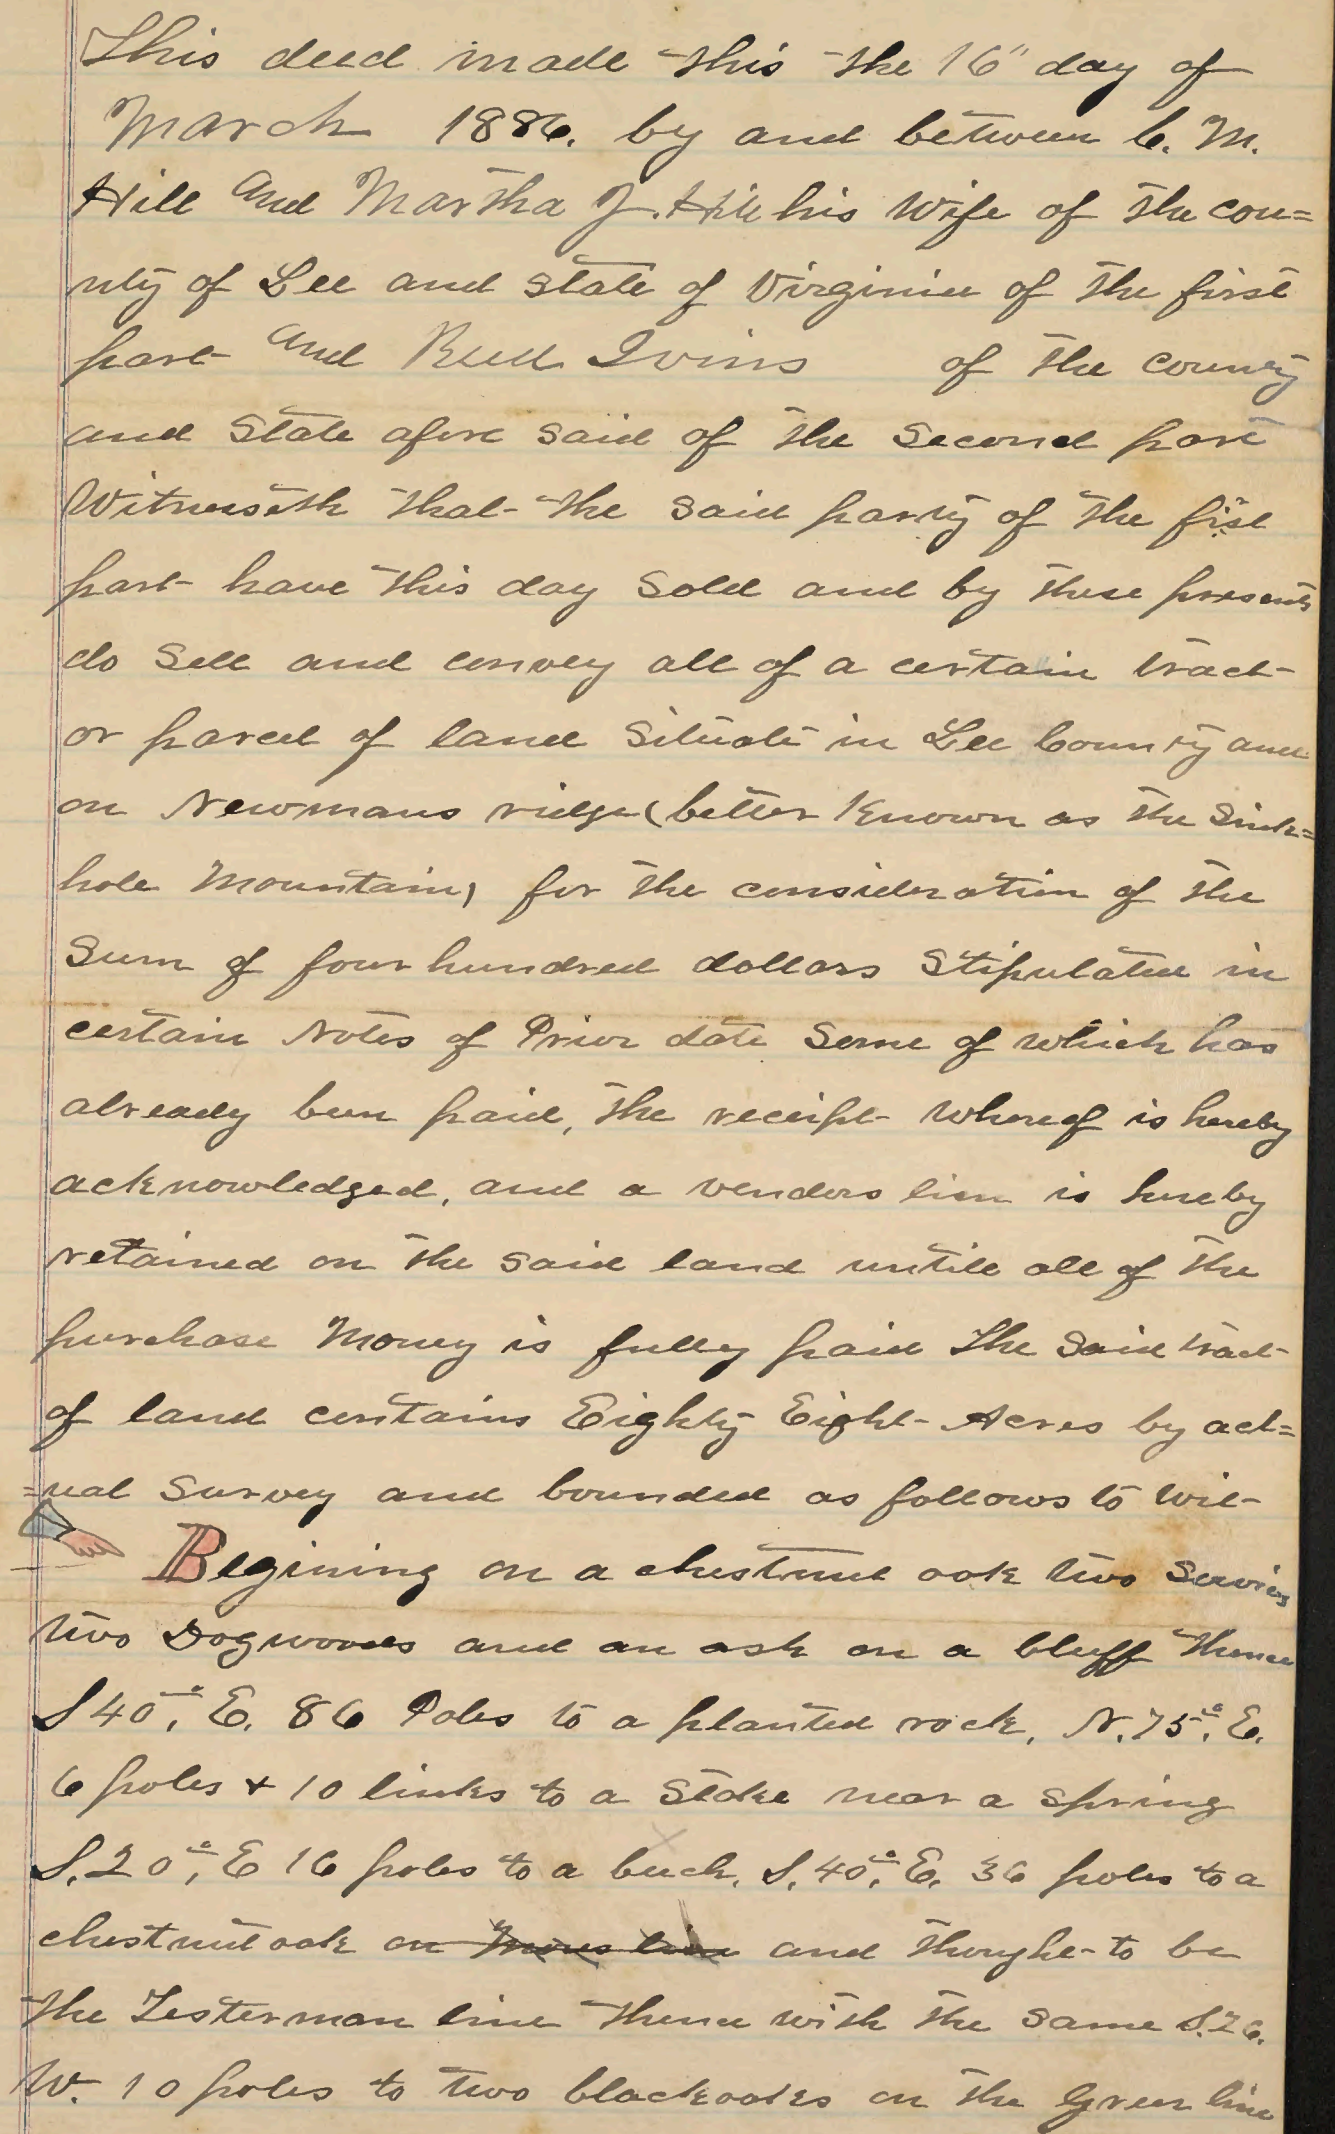 This deed made this the 16" day of
March 1886. by and between C. M.
Hill and Martha J. Hill his wife of the cou=
nty of Lee and state of Virginia of the first
part and Reed Ivins of the county
and State afore said of the Second part
Witnesseth that the said party of the fist
part have this day Sold and by these presents
do Sell and convey all of a certain tract
or parcel of land Situate in Lee County and
on Newmans ridge (better Known as the Sink=
hole Mountain) for the consideration of the
Sum of four hundred dollars Stipulated in
certain Notes of Prior date Some of which has
already been paid, the receipt whereof is hereby
acknowledged, and a venders lien is hereby
retained on the said land untill all of the
purchase Money is fully paid The Said tract
of land contains Eighty Eight Acres by act=
=ual Survey and bounded as follows to wit
Begining on a chestnut oak two
two Dogwoods and an ash on a bluff thence
S 40°, E. 86 Poles to a planted rock, N. 75°, E.
6 poles & 10 links to a Stake near a Spring
S. 20°, E 16 poles to a beech, S. 40°, E. 36 poles to a
chestnut oak on line and thought to be
the Testerman line thence with the same S. 26.
W. 10 poles to two blackoaks on the Green line